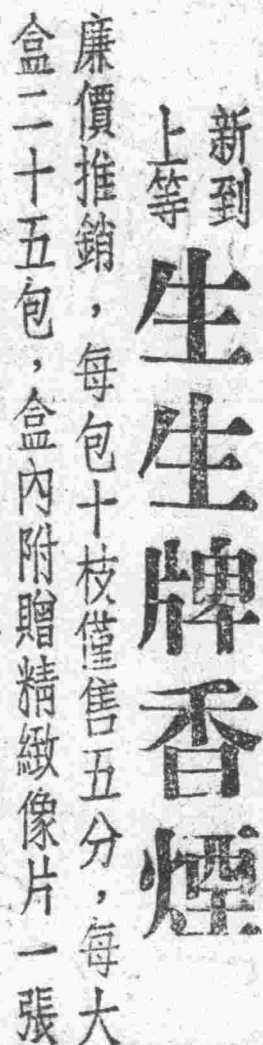 新到
上等
生生牌香煙
廉價推銷，每包十枝僅售五分，每大
盒二十五包，盒內附贈精緻像片一張